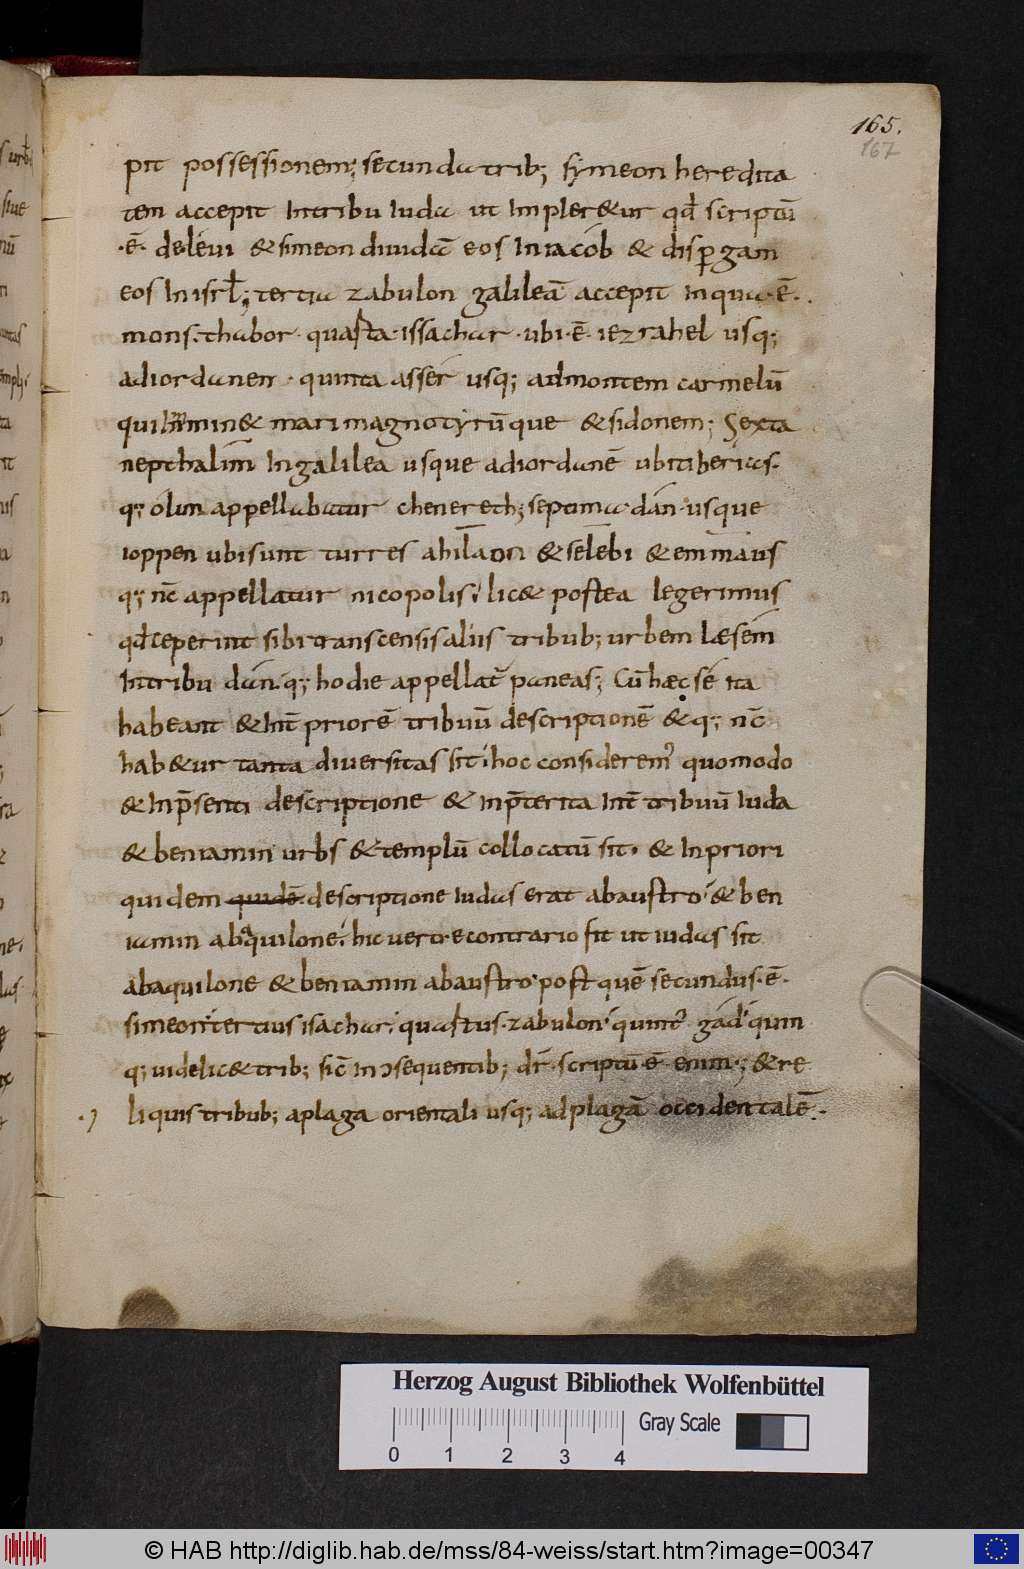 165.
167
pit possessionem; secunda trib; symeon heredita
tem accepit In tribu Iuda ut Impler&ur qđ scriptū
·ē· de leui & simeon diuidā eos In iacob & dispergam
eos In isrł; tertia zabulon galileā accepit In qua·ē·
mons·thabor· quarta·issachar·ubi·ē· iezrahel usq;
ad iordanen· quinta asser usq; ad montem carmelū
qui Imin& mari magno tyrū que & sidonem; Sexta
nepthalim In galilea usque ad iordanē ubi tiberias·
q; olim appellabatur chenereth; septima·dan·usque
ioppen ubi sunt turres ahilaon & selebi & emmaus
q; nc̄ appellatur nicopolis; lic& postea legerimus
qđ ceperint sibi transcensis aliis tribub; urbem Læsem
In tribu dan·q; hodie appellat̃ paneas; Cū hæc se ita
habeant & Int̄ priorē tribuū descriptionē & q; nc̄
hab&ur tanta diuersitas sit hoc considerem' quomodo
& In p̄senti descriptione & In p̄terita Int̄ tribuū Iuda
& beniamin urbs & templū collocatū sit· & In priori
quidem quidē descriptione Iudas erat ab austro & ben
iamin ab aquilone· hic uero e contrario fit ut iudas sit
ab aquilone & beniamin ab austro post quē secundus·ē·
simeon tertius isachar· quartus·zabulon quint' gad quin
q; uidelic& trib; sic̄ In ↄsequentib; dr̄·scriptū·ē· enim·; & re
liquis tribub; a plaga orientali usq; ad plagā occidentalē·
Herzog August Bibliothek Wolfenbüttel
Gray Scale
0 1 2 3 4
© HAB http://diglib.hab.de/mss/84-weiss/start.htm?image=00347